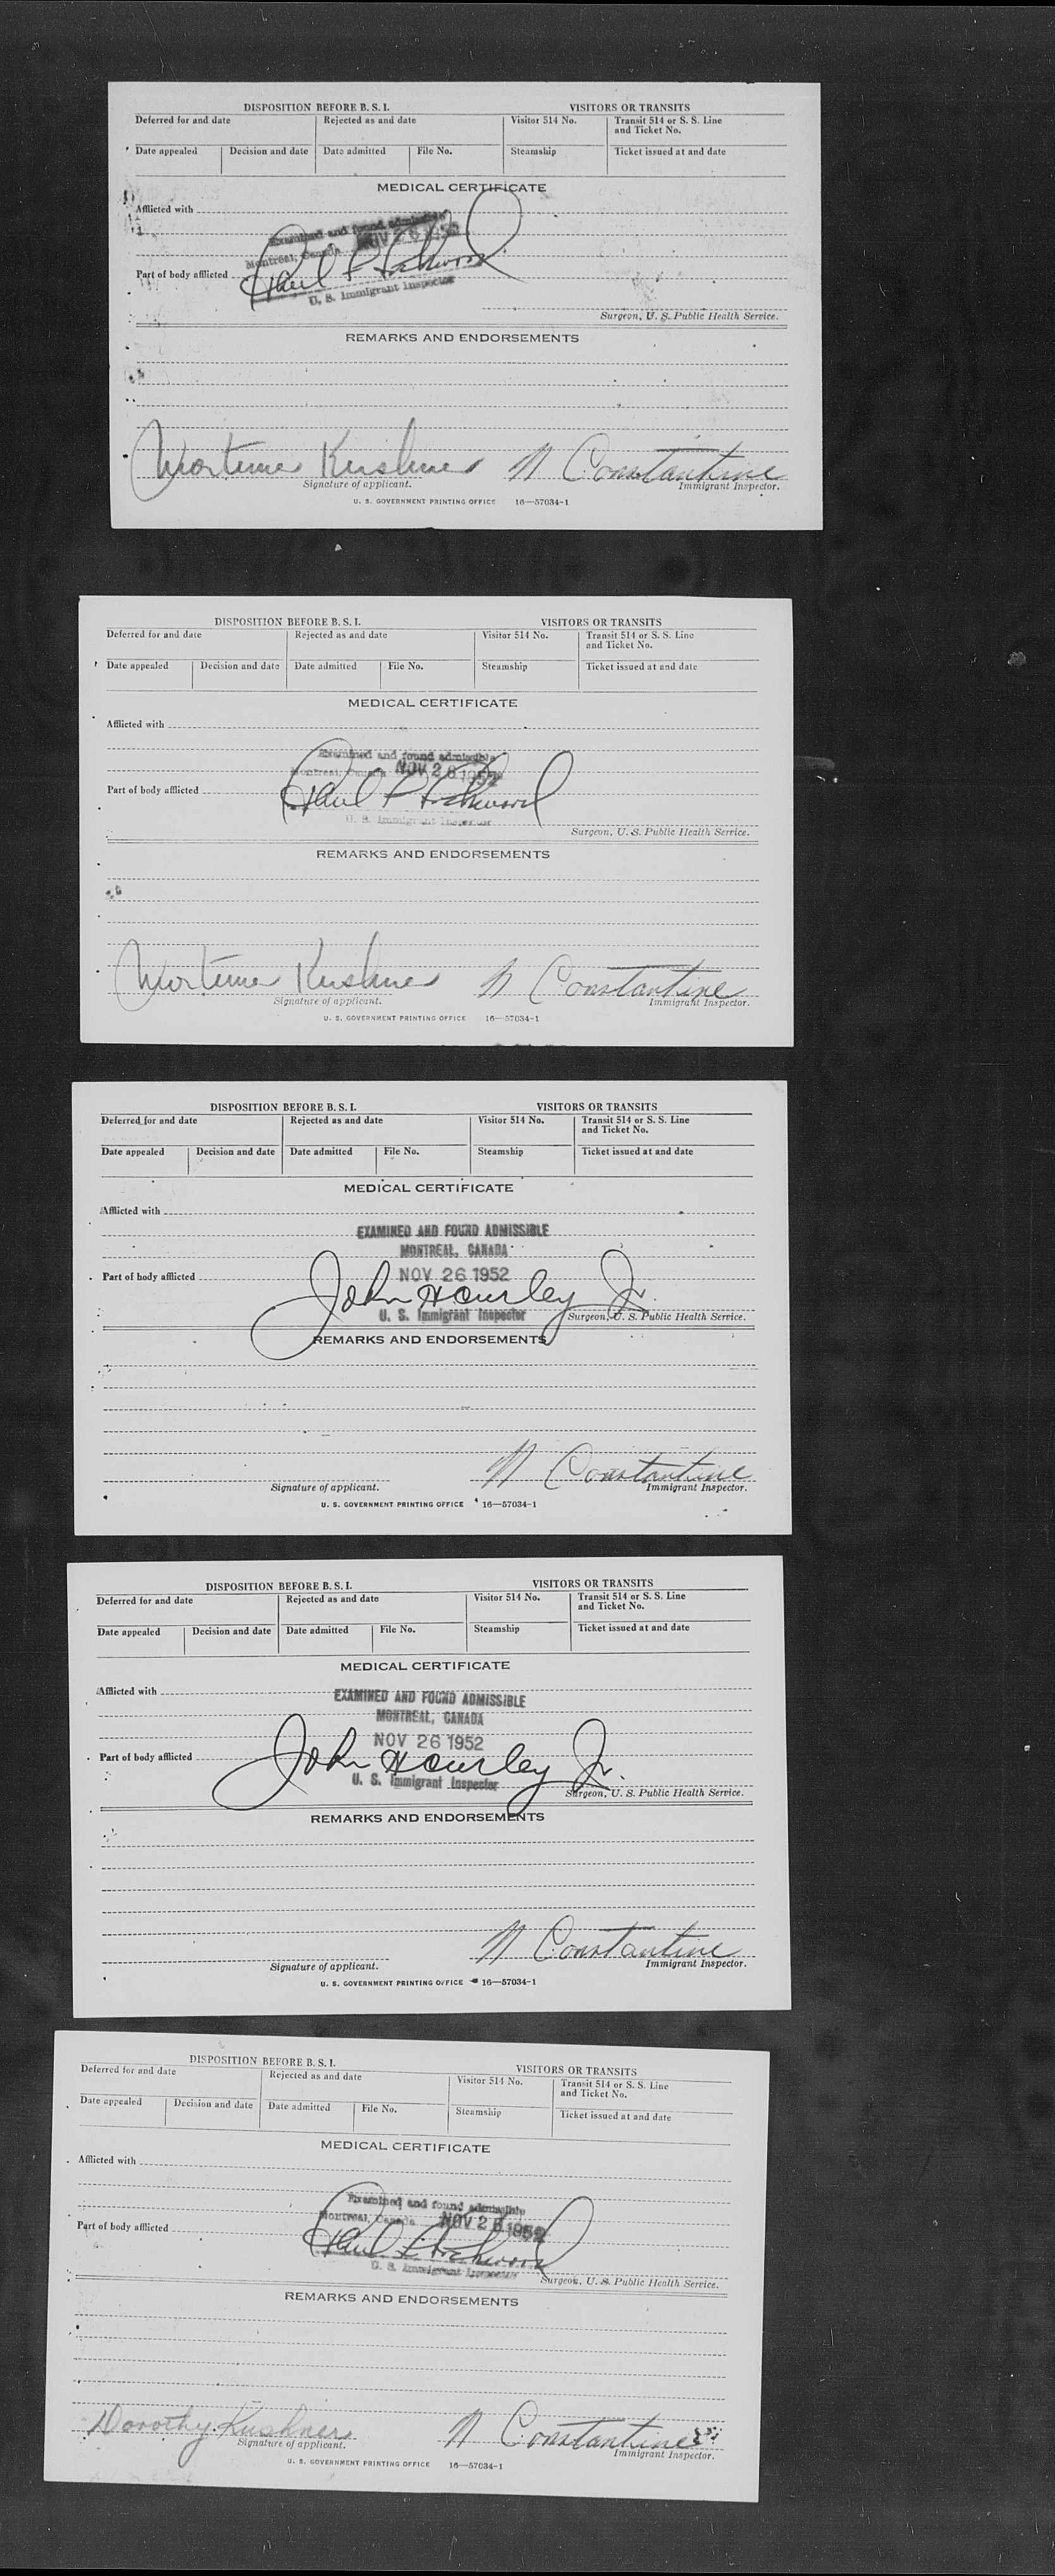 DISPOSITION BEFORE B. S. I. VISITORS OR TRANSITS
Deferred for and date Rejected as and date Visitor 514 No. Transit 514 or S. S. Line and Ticket No.
Date appealed Decision and date Date admitted File No. Steamship Ticket issued at and date
MEDICAL CERTIFICATE
Afflicted with
Examined and found admissible
Montreal, Canada NOV 26 1952
Part of body afflicted Paul
U. S. Immigrant Inspector
Surgeon, U. S. Public Health Service.
REMARKS AND ENDORSEMENTS
Mortimer Kushner N Constantine
Signature of applicant. Immigrant Inspector.
U. S. GOVERNMENT PRINTING OFFICE 16—57034-1
DISPOSITION BEFORE B. S. I. VISITORS OR TRANSITS
Deferred for and date Rejected as and date Visitor 514 No. Transit 514 or S. S. Line and Ticket No.
Date appealed Decision and date Date admitted File No. Steamship Ticket issued at and date
MEDICAL CERTIFICATE
Afflicted with
Examined and found admissible
Montreal, Canada NOV 26 1952
Part of body afflicted Paul
U. S. Immigrant Inspector
Surgeon, U. S. Public Health Service.
REMARKS AND ENDORSEMENTS
Mortimer Kushner N Constantine
Signature of applicant. Immigrant Inspector.
U. S. GOVERNMENT PRINTING OFFICE 16—57034-1
DISPOSITION BEFORE B. S. I. VISITORS OR TRANSITS
Deferred for and date Rejected as and date Visitor 514 No. Transit 514 or S. S. Line and Ticket No.
Date appealed Decision and date Date admitted File No. Steamship Ticket issued at and date
MEDICAL CERTIFICATE
Afflicted with
EXAMINED AND FOUND ADMISSIBLE
MONTREAL, CANADA
Part of body afflicted NOV 26 1952
John Hourley Jr.
U. S. Immigrant Inspector Surgeon, U. S. Public Health Service.
REMARKS AND ENDORSEMENTS
N Constantine
Signature of applicant. Immigrant Inspector.
U. S. GOVERNMENT PRINTING OFFICE 16—57034-1
DISPOSITION BEFORE B. S. I. VISITORS OR TRANSITS
Deferred for and date Rejected as and date Visitor 514 No. Transit 514 or S. S. Line and Ticket No.
Date appealed Decision and date Date admitted File No. Steamship Ticket issued at and date
MEDICAL CERTIFICATE
Afflicted with
EXAMINED AND FOUND ADMISSIBLE
MONTREAL, CANADA
NOV 26 1952
Part of body afflicted John Hourley Jr.
U. S. Immigrant Inspector
Surgeon, U. S. Public Health Service.
REMARKS AND ENDORSEMENTS
N Constantine
Signature of applicant. Immigrant Inspector.
U. S. GOVERNMENT PRINTING OFFICE 16—57034-1
DISPOSITION BEFORE B. S. I. VISITORS OR TRANSITS
Deferred for and date Rejected as and date Visitor 514 No. Transit 514 or S. S. Line and Ticket No.
Date appealed Decision and date Date admitted File No. Steamship Ticket issued at and date
MEDICAL CERTIFICATE
Afflicted with
Examined and found admissible
Montreal, Canada NOV 26 1952
Part of body afflicted Paul
U. S. Immigrant Inspector
Surgeon, U. S. Public Health Service.
REMARKS AND ENDORSEMENTS
Dorothy Kushner N Constantine
Signature of applicant. Immigrant Inspector.
U. S. GOVERNMENT PRINTING OFFICE 16—57034-1